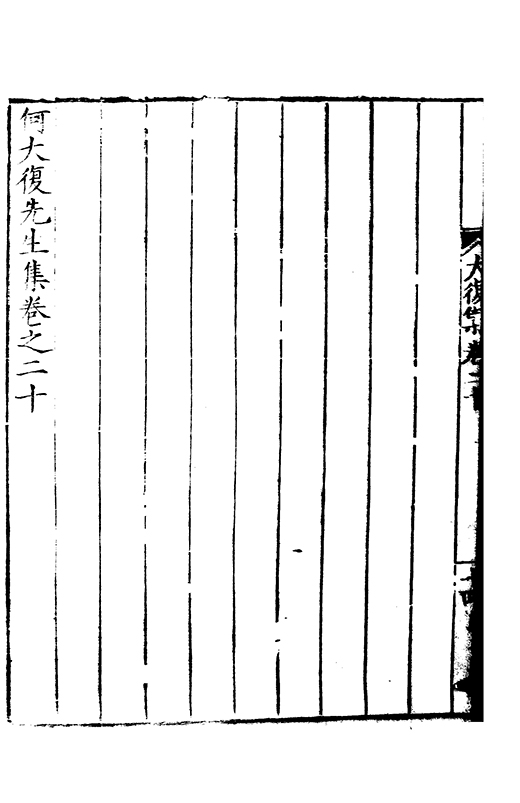 大復集卷二十
何大復先生集卷之二十